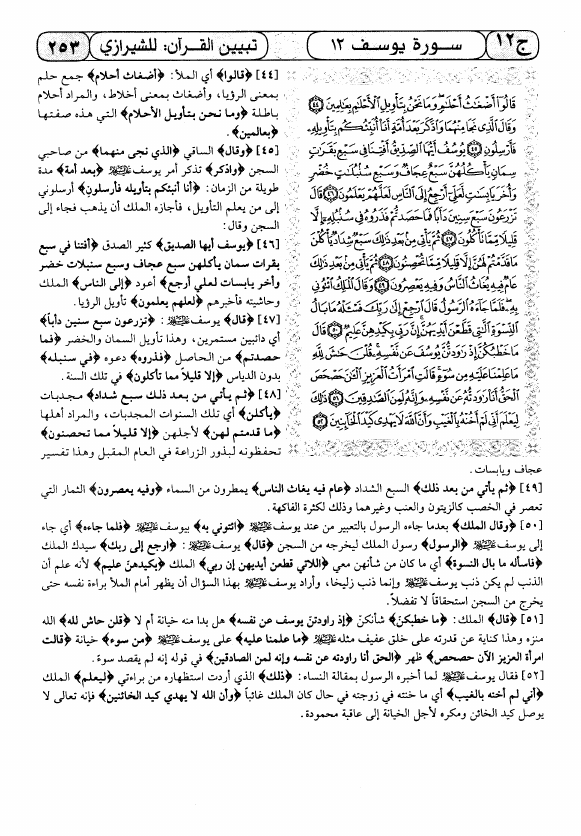 ج١٢
سورة يوسف ١٢
تبيين القرآن: للشيرازي
٢٥٣
قَالُوا أَضْغَاثُ أَحْلَامٍ وَمَا نَحْنُ بِتَأْوِيلِ الْأَحْلَامِ بِعَالِمِينَ ٤٤
وَقَالَ الَّذِي نَجَا مِنْهُمَا وَادَّكَرَ بَعْدَ أُمَّةٍ أَنَا أُنَبِّئُكُم بِتَأْوِيلِهِ
فَأَرْسِلُونِ ٤٥ يُوسُفُ أَيُّهَا الصِّدِّيقُ أَفْتِنَا فِي سَبْعِ بَقَرَاتٍ
سِمَانٍ يَأْكُلُهُنَّ سَبْعٌ عِجَافٌ وَسَبْعِ سُنبُلَاتٍ خُضْرٍ
وَأُخَرَ يَابِسَاتٍ لَّعَلِّي أَرْجِعُ إِلَى النَّاسِ لَعَلَّهُمْ يَعْلَمُونَ ٤٦ قَالَ
تَزْرَعُونَ سَبْعَ سِنِينَ دَأَبًا فَمَا حَصَدتُّمْ فَذَرُوهُ فِي سُنبُلِهِ إِلَّا
قَلِيلًا مِّمَّا تَأْكُلُونَ ٤٧ ثُمَّ يَأْتِي مِن بَعْدِ ذَلِكَ سَبْعٌ شِدَادٌ يَأْكُلْنَ
مَا قَدَّمْتُمْ لَهُنَّ إِلَّا قَلِيلًا مِّمَّا تُحْصِنُونَ ٤٨ ثُمَّ يَأْتِي مِن بَعْدِ ذَلِكَ
عَامٌ فِيهِ يُغَاثُ النَّاسُ وَفِيهِ يَعْصِرُونَ ٤٩ وَقَالَ الْمَلِكُ ائْتُونِي
بِهِ فَلَمَّا جَاءَهُ الرَّسُولُ قَالَ ارْجِعْ إِلَى رَبِّكَ فَسْئَلْهُ مَا بَالُ
النِّسْوَةِ الَّتِي قَطَّعْنَ أَيْدِيَهُنَّ إِنَّ رَبِّي بِكَيْدِهِنَّ عَلِيمٌ ٥٠ قَالَ
مَا خَطْبُكُنَّ إِذْ رَاوَدتُّنَّ يُوسُفَ عَن نَّفْسِهِ قُلْنَ حَاشَ لِلَّهِ
مَا عَلِمْنَا عَلَيْهِ مِن سُوءٍ قَالَتِ امْرَأَتُ الْعَزِيزِ الْآنَ حَصْحَصَ
الْحَقُّ أَنَا رَاوَدتُّهُ عَن نَّفْسِهِ وَإِنَّهُ لَمِنَ الصَّادِقِينَ ٥١ ذَلِكَ
لِيَعْلَمَ أَنِّي لَمْ أَخُنْهُ بِالْغَيْبِ وَأَنَّ اللَّهَ لَا يَهْدِي كَيْدَ الْخَائِنِينَ ٥٢
[٤٤] ﴿قالوا﴾ أي الملأ: ﴿أضغاث أحلام﴾ جمع حلم
بمعنى الرؤيا، وأضغاث بمعنى أخلاط، والمراد أحلام
باطلة ﴿وما نحن بتأويل الأحلام﴾ التي هذه صفتها
﴿بعالمين﴾.
[٤٥] ﴿وقال﴾ الساقي ﴿الذي نجى منهما﴾ من صاحبي
السجن ﴿وادّكر﴾ تذكر أمر يوسف ﷺ ﴿بعد أمة﴾ مدة
طويلة من الزمان: ﴿أنا أنبئكم بتأويله فأرسلون﴾ أرسلوني
إلى من يعلم التأويل، فأجازه الملك أن يذهب فجاء إلى
السجن وقال:
[٤٦] ﴿يوسف أيها الصديق﴾ كثير الصدق ﴿أفتنا في سبع
بقرات سمان يأكلهن سبع عجاف وسبع سنبلات خضر
وأخر يابسات لعلي أرجع﴾ أعود ﴿إلى الناس﴾ الملك
وحاشيته فأخبرهم ﴿لعلهم يعلمون﴾ تأويل الرؤيا.
[٤٧] ﴿قال﴾ يوسف ﷺ : ﴿تزرعون سبع سنين دأباً﴾
أي دائبين مستمرين، وهذا تأويل السمان والخضر ﴿فما
حصدتم﴾ من الحاصل ﴿فذروه﴾ دعوه ﴿في سنبله﴾
بدون الدياس ﴿إلا قليلاً مما تأكلون﴾ في تلك السنة.
[٤٨] ﴿ثم يأتي من بعد ذلك سبع شداد﴾ مجدبات
﴿يأكلن﴾ أي تلك السنوات المجدبات، والمراد أهلها
﴿ما قدمتم لهن﴾ لأجلهن ﴿إلا قليلاً مما تحصنون﴾
تحفظونه لبذور الزراعة في العام المقبل وهذا تفسير
عجاف ويابسات .
[٤٩] ﴿ثم يأتي من بعد ذلك﴾ السبع الشداد ﴿عام فيه يغاث الناس﴾ يمطرون من السماء ﴿وفيه يعصرون﴾ الثمار التي
تعصر في الخصب كالزيتون والعنب وغيرهما وذلك لكثرة الفاكهة.
[٥٠] ﴿وقال الملك﴾ بعدما جاءه الرسول بالتعبير من عند يوسف ﷺ : ﴿ائتوني به﴾ بيوسف ﷺ ﴿فلما جاءه﴾ أي جاء
إلى يوسف ﷺ ﴿الرسول﴾ رسول الملك ليخرجه من السجن ﴿قال﴾ يوسف ﷺ : ﴿ارجع إلى ربك﴾ سيدك الملك
﴿فاسأله ما بال النسوة﴾ أي ما كان من شأنهن معي ﴿اللاتي قطعن أيديهن إن ربي﴾ الملك ﴿بكيدهن عليم﴾ لأنه علم أن
الذنب لم يكن ذنب يوسف ﷺ وإنما ذنب زليخا، وأراد يوسف ﷺ بهذا السؤال أن يظهر أمام الملأ براءة نفسه حتى
يخرج من السجن استحقاقاً لا تفضلاً.
[٥١] ﴿قال﴾ الملك: ﴿ما خطبكن﴾ شأنكنّ ﴿إذ راودتنّ يوسف عن نفسه﴾ هل بدا منه خيانة أم لا ﴿قلن حاش لله﴾ الله
منزه وهذا كناية عن قدرته على خلق عفيف مثله ﷺ ﴿ما علمنا عليه﴾ على يوسف ﷺ ﴿من سوء﴾ خيانة ﴿قالت
امرأة العزيز الآن حصحص﴾ ظهر ﴿الحق أنا راودته عن نفسه وإنه لمن الصادقين﴾ في قوله إنه لم يقصد سوء .
[٥٢] فقال يوسف ﷺ لما أخبره الرسول بمقالة النساء: ﴿ذلك﴾ الذي أردت استظهاره من براءتي ﴿ليعلم﴾ الملك
﴿أني لم أخنه بالغيب﴾ أي ما خنته في زوجته في حال كان الملك غائباً ﴿وأن الله لا يهدي كيد الخائنين﴾ فإنه تعالى لا
يوصل كيد الخائن ومكره لأجل الخيانة إلى عاقبة محمودة .